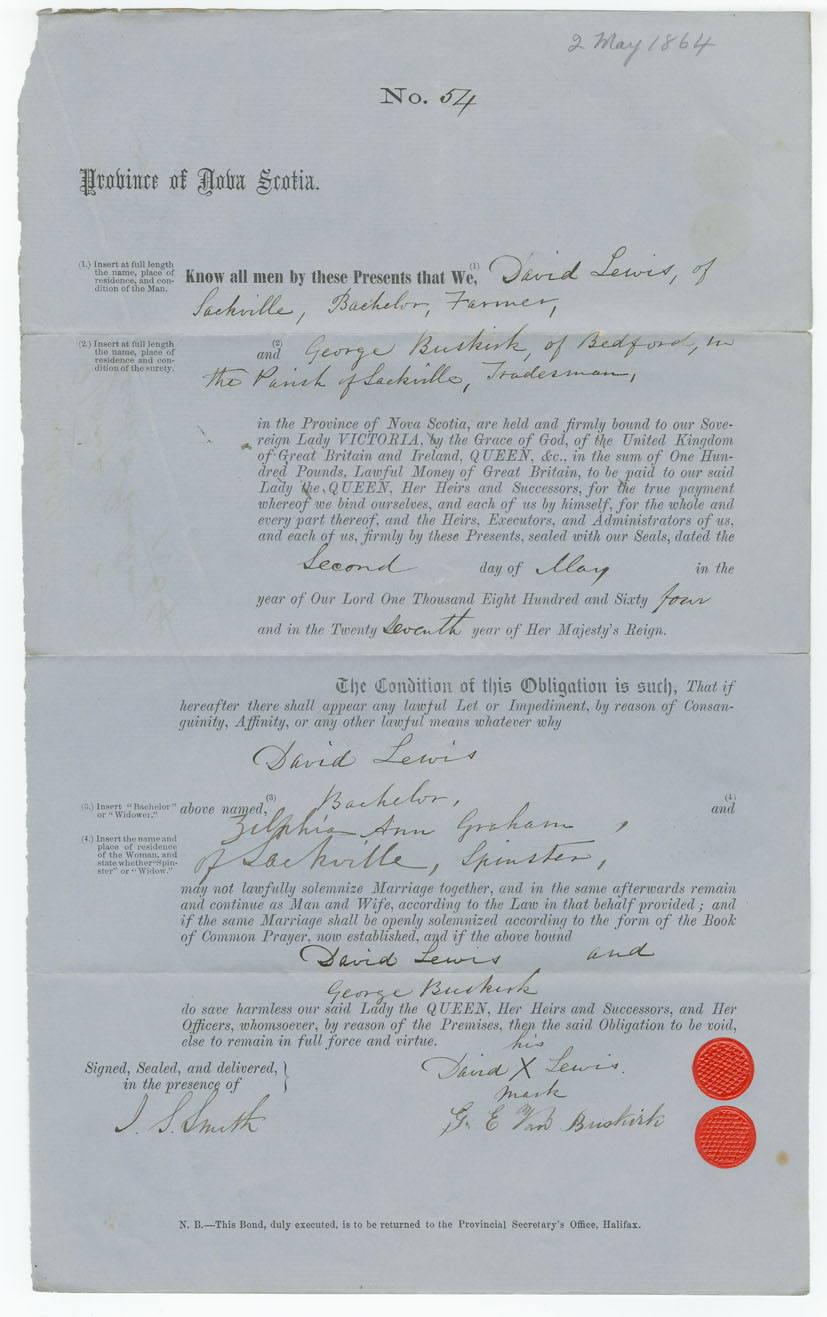 2 May 1864
No. 54
Province of Nova Scotia.
(1.) Insert at full length
the name, place of
residence, and con-
dition of the Man.
Know all men by these Presents that We, (1) David Lewis, of
Sackville, Bachelor, Farmer,
(2.) Insert at full length
the name, place of
residence and con-
dition of the surety.
and (2) George Buskirk, of Bedford, in
the Parish of Sackville, Tradesman,
in the Province of Nova Scotia, are held and firmly bound to our Sove-
reign Lady VICTORIA, by the Grace of God, of the United Kingdom
of Great Britain and Ireland, QUEEN, &c., in the sum of One Hun-
dred Pounds, Lawful Money of Great Britain, to be paid to our said
Lady the, QUEEN, Her Heirs and Successors, for the true payment
whereof we bind ourselves, and each of us by himself, for the whole and
every part thereof, and the Heirs, Executors, and Administrators of us,
and each of us, firmly by these Presents, sealed with our Seals, dated the
Second day of May in the
year of Our Lord One Thousand Eight Hundred and Sixty four
and in the Twenty Seventh year of Her Majesty's Reign.
The Condition of this Obligation is such, That if
hereafter there shall appear any lawful Let or Impediment, by reason of Consan-
guinity, Affinity, or any other lawful means whatever why
David Lewis
(3.) Insert "Bachelor"
or "Widower."
above named, (3) Bachelor, and (4)
(4.) Insert the name and
place of residence
of the Woman, and
state whether "Spin-
ster" or "Widow."
Zilphia Ann Graham,
of Sackville, Spinster,
may not lawfully solemnize Marriage together, and in the same afterwards remain
and continue as Man and Wife, according to the Law in that behalf provided; and
if the same Marriage shall be openly solemnized according to the form of the Book
of Common Prayer, now established, and if the above bound
David Lewis and
George Buskirk
do save harmless our said Lady the QUEEN, Her Heirs and Successors, and Her
Officers, whomsoever, by reason of the Premises, then the said Obligation to be void,
else to remain in full force and virtue.
his
Signed, Sealed, and delivered,
in the presence of
David X Lewis.
mark
J. S. Smith
G. E Van Buskirk
N. B.—This Bond, duly executed, is to be returned to the Provincial Secretary's Office, Halifax.